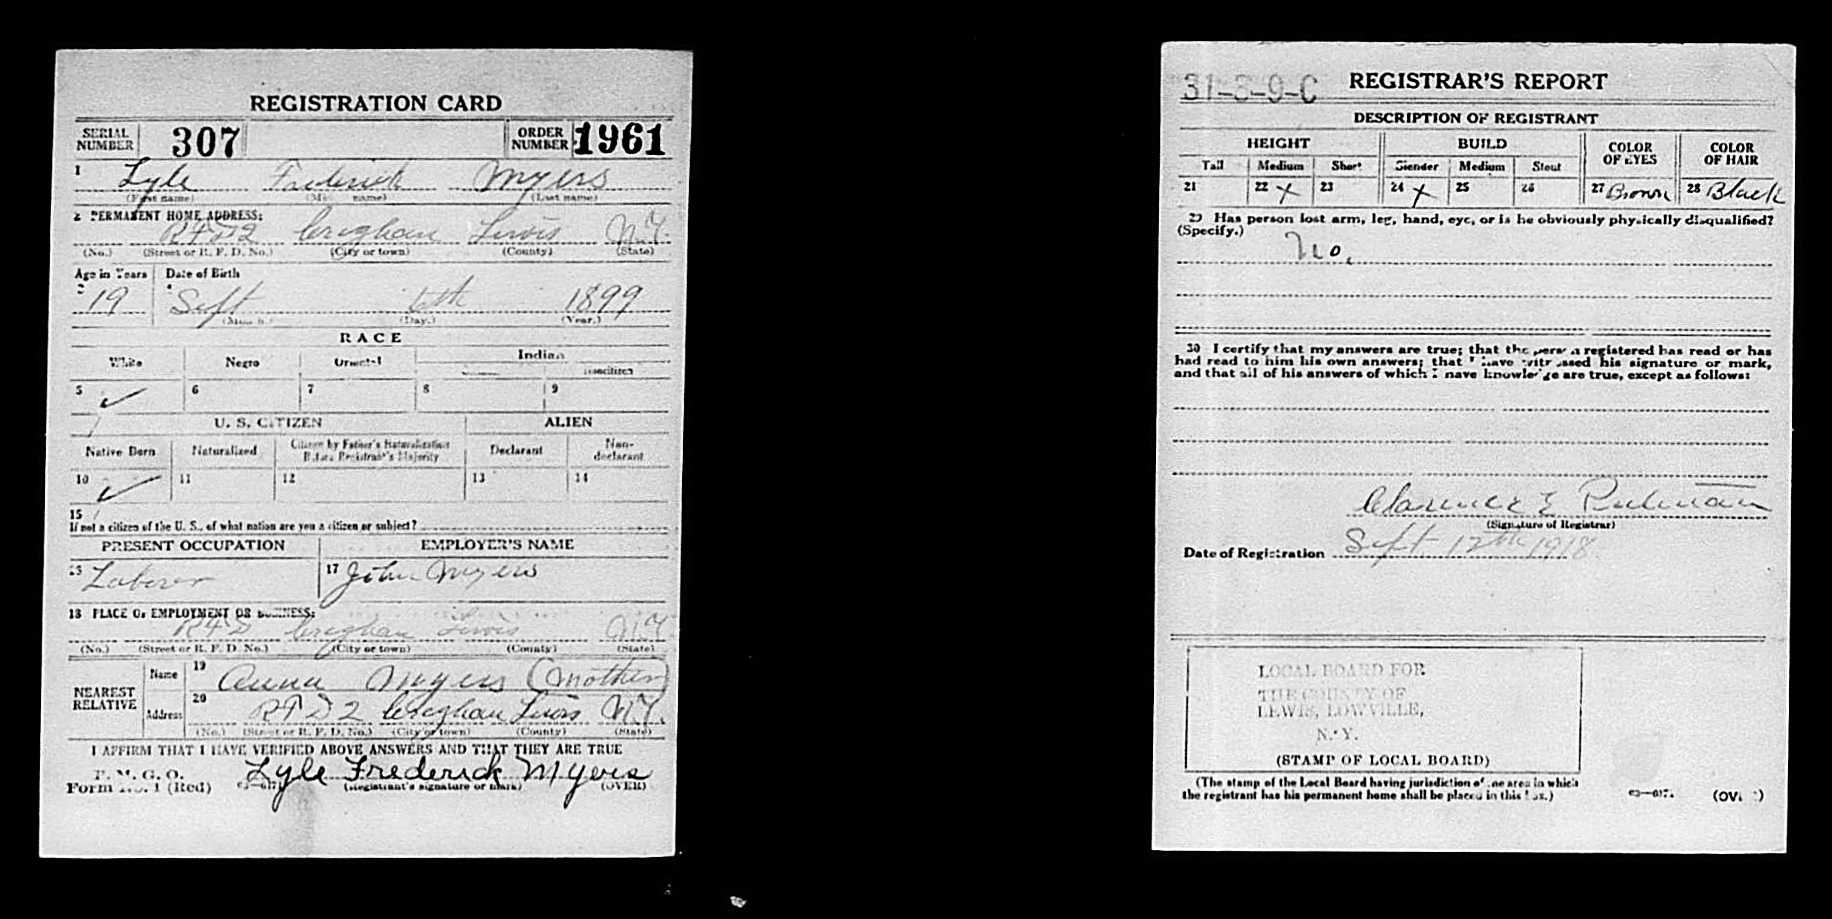 REGISTRATION CARD
SERIAL NUMBER 307 ORDER NUMBER 1961
1 Lyle Frederick Myers
(First name) (Middle name) (Last name)
2 PERMANENT HOME ADDRESS:
RFD 2 Croghan Lewis N.Y.
(No.) (Street or R. F. D. No.) (City or town) (County) (State)
Age in Years Date of Birth
19 Sept 6th 1899
(Month.) (Day.) (Year.)
RACE
White Negro Oriental Indian
Noncitizen
5 ✓ 6 7 8 9
U. S. CITIZEN ALIEN
Native Born Naturalized Citizen by Father's Naturalization Before Registrant's Majority Declarant Non-declarant
10 ✓ 11 12 13 14
15
If not a citizen of the U. S., of what nation are you a citizen or subject?
PRESENT OCCUPATION EMPLOYER'S NAME
16 Laborer 17 John Myers
18 PLACE OF EMPLOYMENT OR BUSINESS:
RFD Croghan Lewis N.Y.
(No.) (Street or R. F. D. No.) (City or town) (County) (State)
NEAREST RELATIVE Name 19 Anna Myers (Mother)
Address 20 RFD 2 Croghan Lewis N.Y.
(No.) (Street or R. F. D. No.) (City or town) (County) (State)
I AFFIRM THAT I HAVE VERIFIED ABOVE ANSWERS AND THAT THEY ARE TRUE
P. M. G. O.
Form No. 1 (Red) Lyle Frederick Myers
(Registrant's signature or mark) (OVER)
31-3-9-C REGISTRAR'S REPORT
DESCRIPTION OF REGISTRANT
HEIGHT BUILD COLOR OF EYES COLOR OF HAIR
Tall Medium Short Slender Medium Stout
21 22 X 23 24 X 25 26 27 Brown 28 Black
29 Has person lost arm, leg, hand, eye, or is he obviously physically disqualified?
(Specify.)
No.
30 I certify that my answers are true; that the person registered has read or has
had read to him his own answers; that I have witnessed his signature or mark,
and that all of his answers of which I have knowledge are true, except as follows:
Clarence E
(Signature of Registrar)
Date of Registration Sept 12th 1918
LOCAL BOARD FOR
THE COUNTY OF
LEWIS, LOWVILLE,
N. Y.
(STAMP OF LOCAL BOARD)
(The stamp of the Local Board having jurisdiction of the area in which
the registrant has his permanent home shall be placed in this box.)
(OVER)